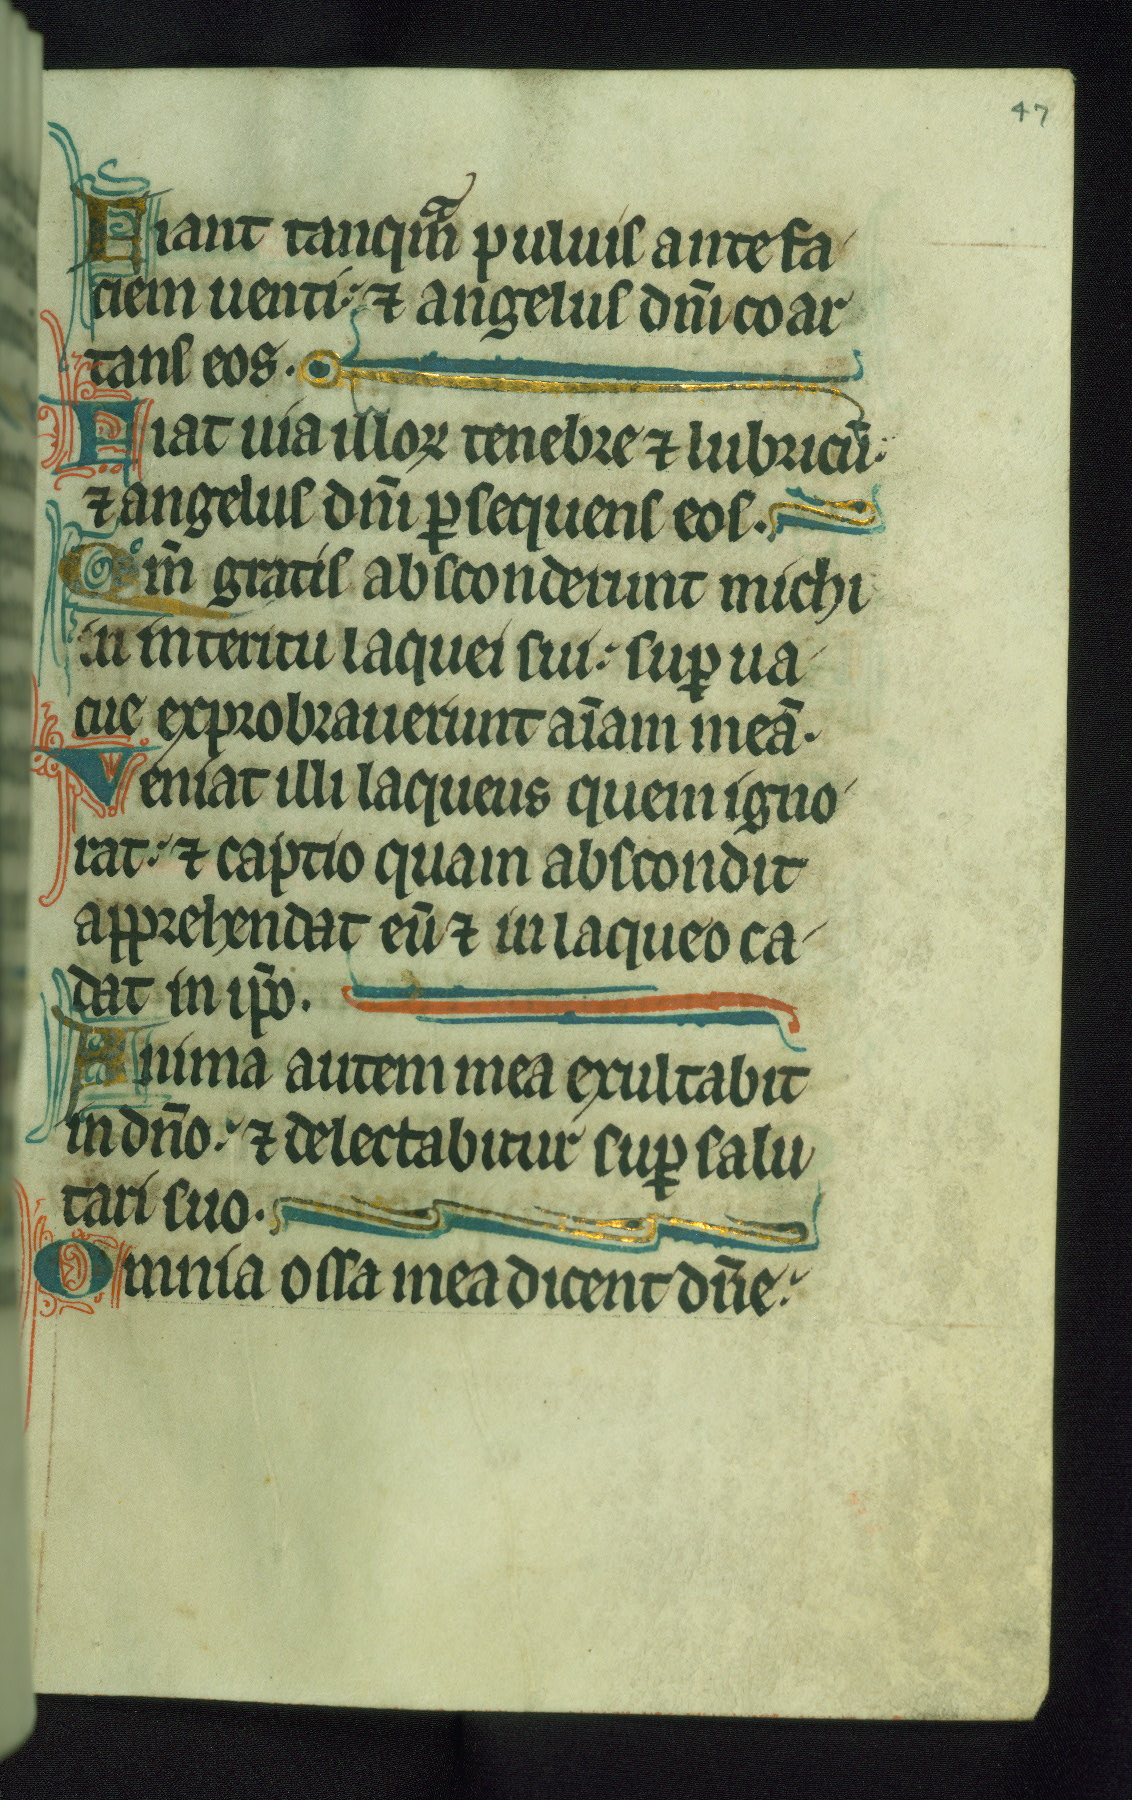 47
Fiant tanqm̃ puluis ante fa
ciem uenti: ⁊ angelus dñi coar
tans eos.
Fiat uia illoꝝ tenebre ⁊ lubricū:
⁊ angelus dñi ꝑsequens eos.
Qm̄ gratis absconderunt michi
in interitu laquei sui: suꝑ ua
cue exprobrauerunt aīam meā.
Veniat illi laqueus quem igno
rat: ⁊ captio quam abscondit
apprehendat eū ⁊ in laqueo ca
dat in ip̄o.
Anima autem mea exultabit
in dño: ⁊ delectabitur suꝑ salu
tari suo.
Omnia ossa mea dicent dñe: